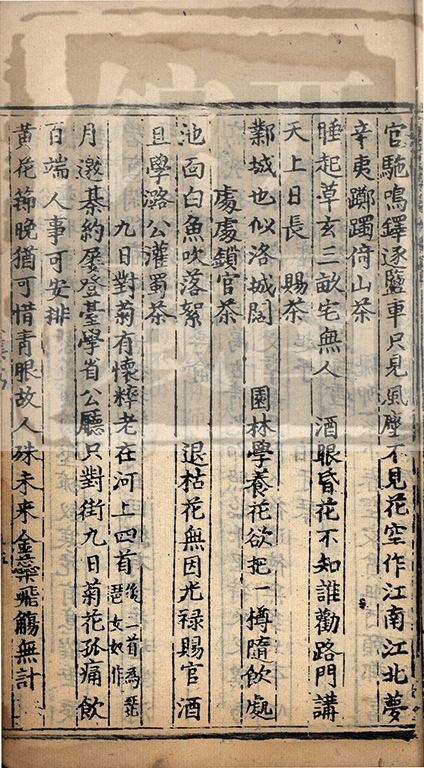 官駞鳴鐸逐鹽車只見風塵不見花空作江南江北夢
辛夷躑躅倚山茶
睡起草玄三畝宅無人　酒眼昏花不知誰勸路門講
天上日長　賜茶
鄴城也似洛城閑　園林學養花欲把一樽隨飲處
處處鎖官茶
池面白魚吹落絮　退枯花無因光禄賜官酒
且學潞公灌蜀茶
九日對菊有懷粹老在河上四首後二首為
琵女奴作
月邀棊約屡登臺學省公廳只對街九日菊花孤痛飲
百端人事可安排
黄花節晚猶可惜青眼故人殊未來金蘂飛觴無計